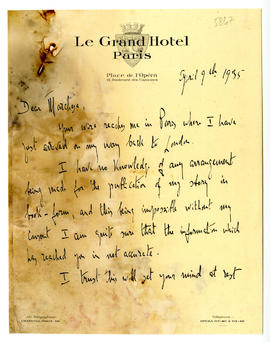 5867
Le Grand Hotel
Paris
Place de l'Opéra
12 Boulevard des Capucines
April 9th 1935
Dear
Your wire reaches me in Paris where I have
just arrived on my way back to London.
I have no knowledge of any arrangement
being made for the publication of my story in
book-form and this being impossible without my
consent I am quite sure that the information which
has reached you is not accurate.
I trust this will set your mind at rest